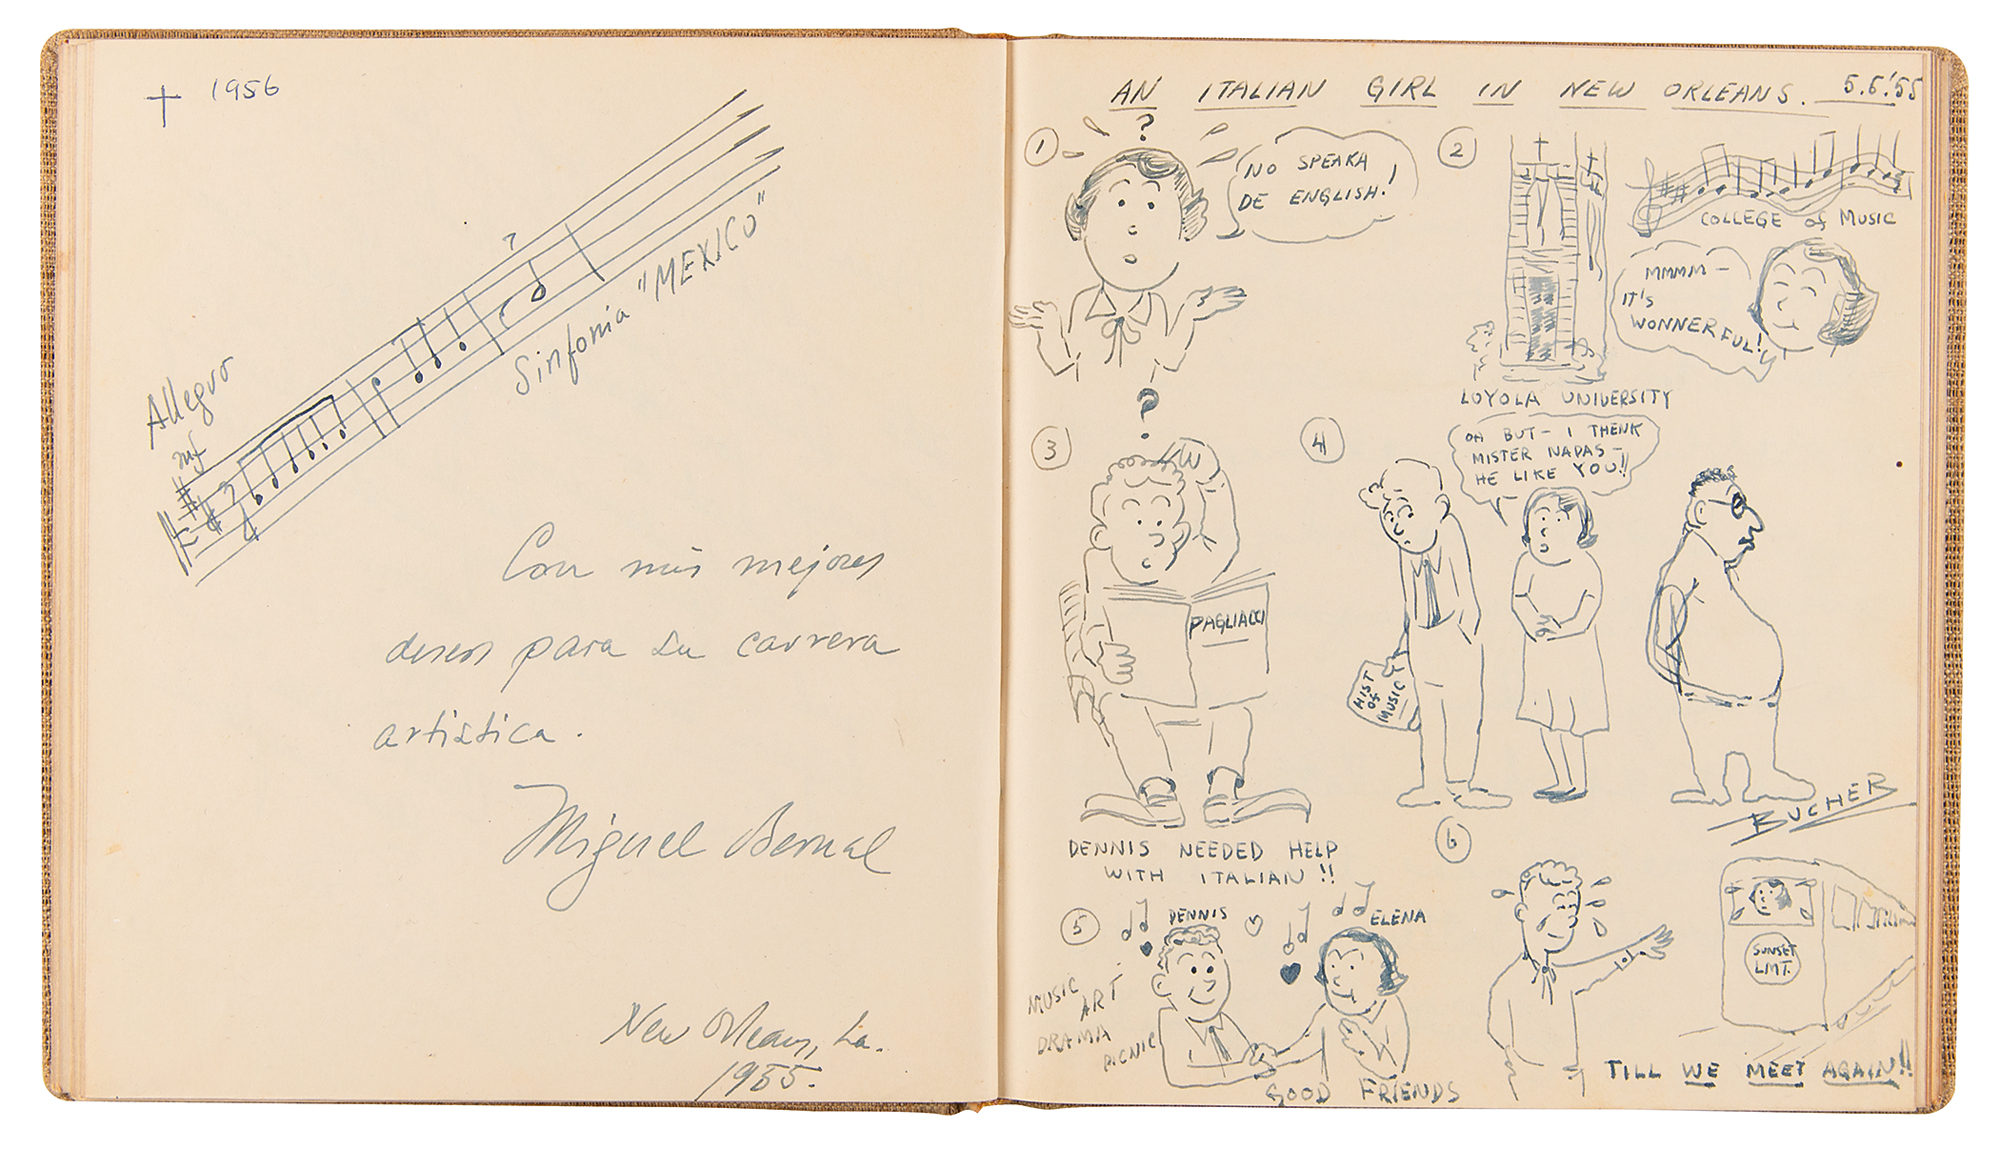 † 1956
Allegro
mf
Sinfonia "MEXICO"
Con mis mejores
deseos para su carrera
artistica.
Miguel Bernal
New Orleans, La.
1955.
AN ITALIAN GIRL IN NEW ORLEANS. 5.6.'55
1
?
NO SPEAKA
DE ENGLISH!
2
COLLEGE of MUSIC
MMMM -
IT'S
WONNERFUL!
LOYOLA UNIVERSITY
3
?
PAGLIACCI
DENNIS NEEDED HELP
WITH ITALIAN!!
4
OH BUT - I THENK
MISTER NADAS -
HE LIKE YOU!!
HIST
of
MUSIC
BUCHER
5
DENNIS
ELENA
MUSIC
ART
DRAMA
PICNIC
GOOD FRIENDS
6
SUNSET
LMT.
TILL WE MEET AGAIN!!